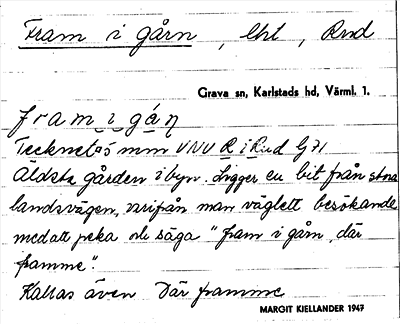 Fram i gårn, Eht, Rud
Grava sn, Karlstads hd, Värml. 1.
fram i gán
mm VNV R i Rud G71
Äldsta gården i byn. Ligger en bit från stora
landsvägen, varifrån man väglett besökande
med att peka och säga "fram i gårn, där
framme".
Kallas även Där framme
MARGIT KJELLANDER 1947